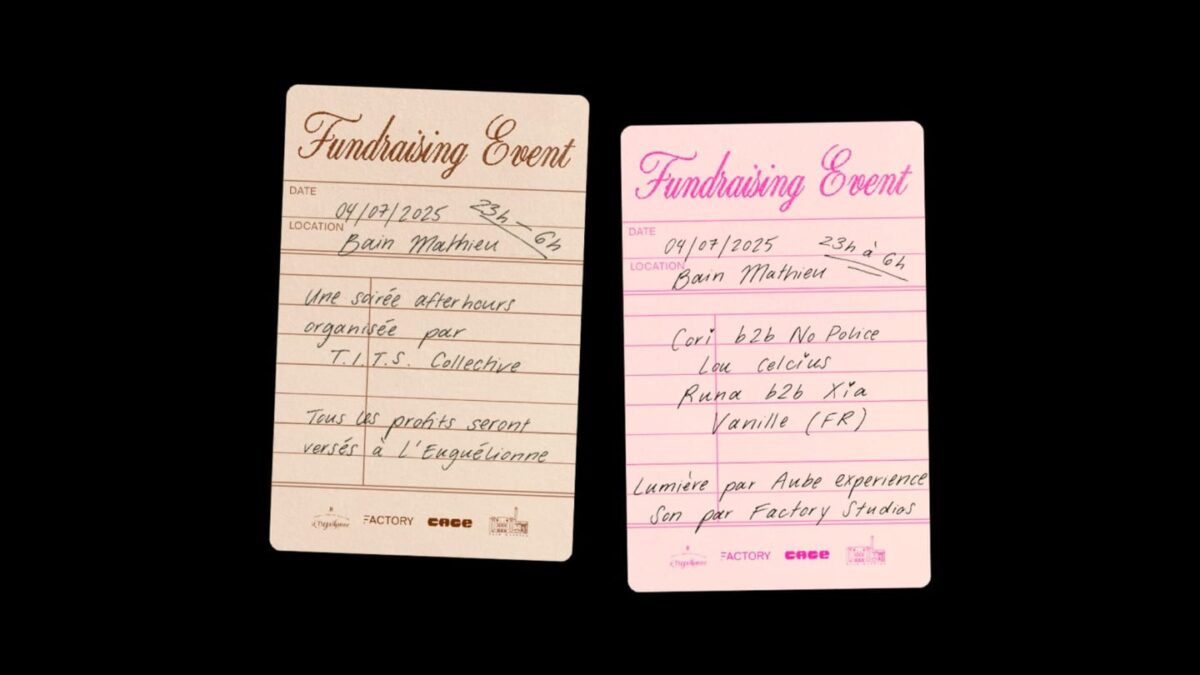 Fundraising Event
DATE
04/07/2025 23h – 6h
LOCATION
Bain Mathieu
Une soirée afterhours
organisée par
T.I.T.S. Collective
Tous les profits seront
versés à l'Euguélionne
l'Euguélionne FACTORY CAGE
Fundraising Event
DATE
04/07/2025 23h à 6h
LOCATION
Bain Mathieu
Cori b2b No Police
Lou Celcius
Runa b2b Xia
Vanille (FR)
Lumière par Aube experience
Son par Factory Studios
l'Euguélionne FACTORY CAGE